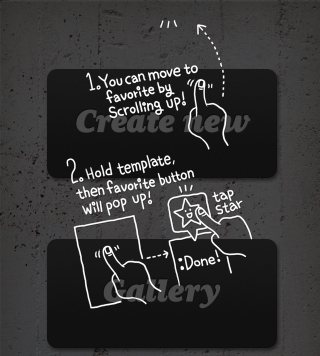 1. You can move to
favorite by
Scrolling up!
Create new
2. Hold template,
then favorite button
will pop up!
tap
star
:Done!
Gallery